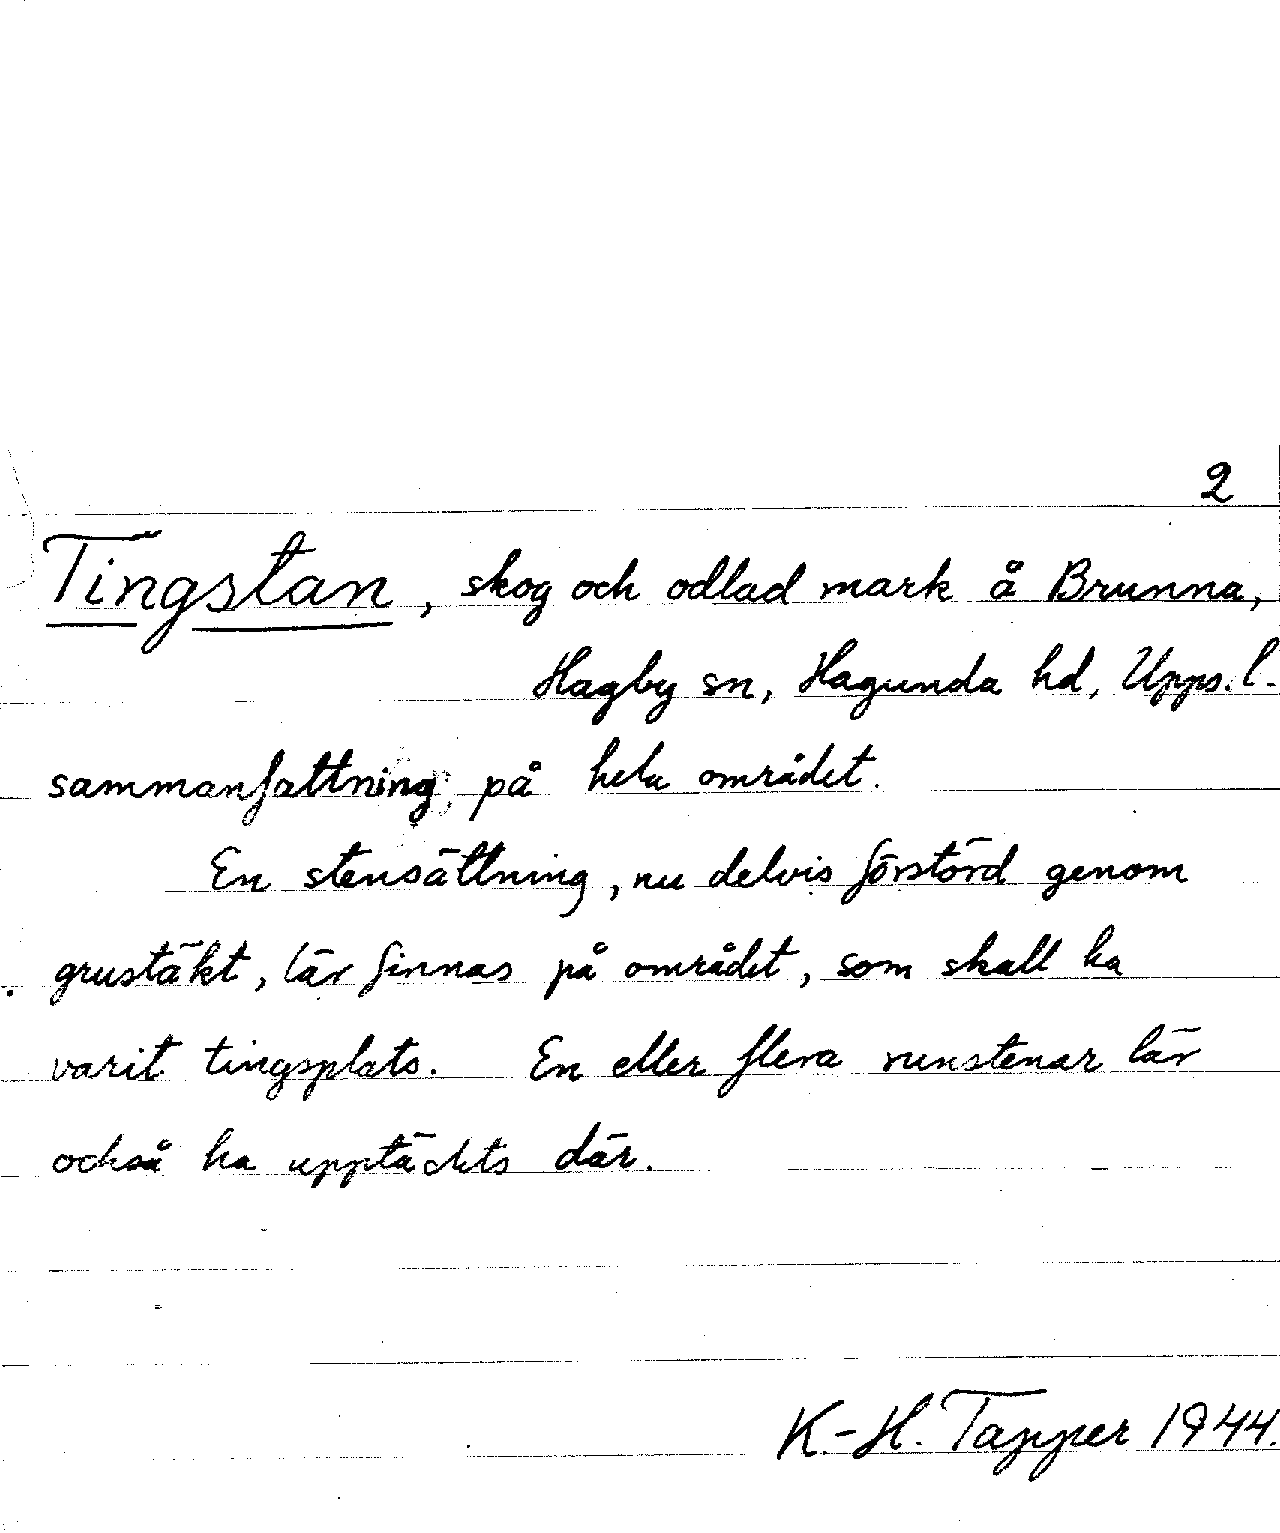 2
Tingstan, skog och odlad mark å Brunna,
Hagby sn, Hagunda hd, Upps. l.
sammanfattning på hela området.
En stensättning, nu delvis förstörd genom
grustäkt, lär finnas på området, som skall ha
varit tingsplats. En eller flera runstenar lär
också ha upptäckts där.
K.-H. Tapper 1944.